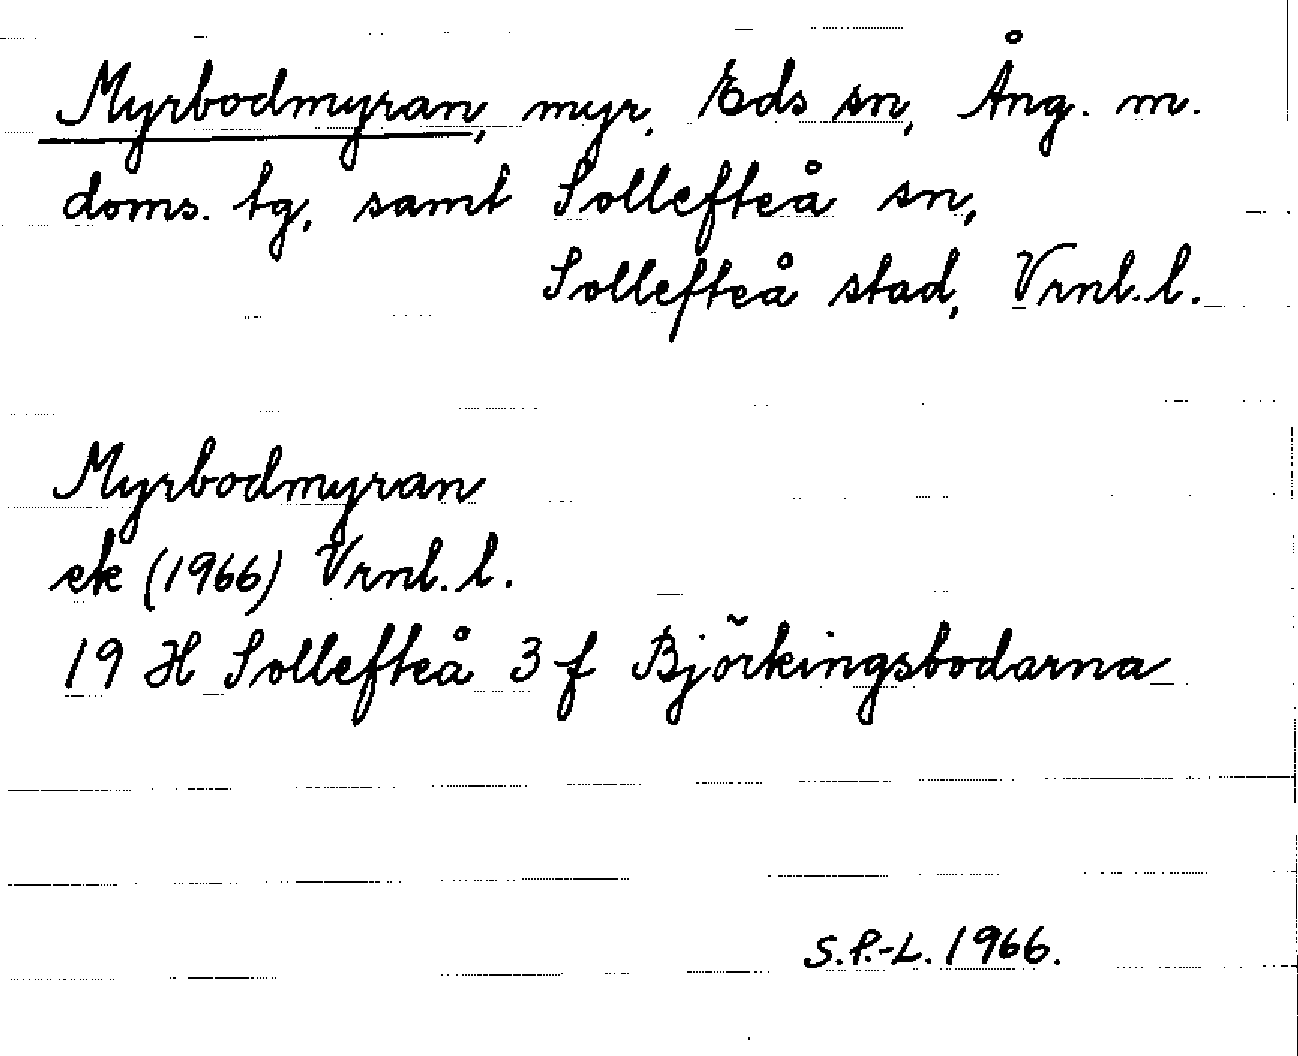 Myrbodmyran, myr, Eds sn, Ång. m.
doms. tg, samt Sollefteå sn,
Sollefteå stad, Vrnl. l.
Myrbodmyran
ek (1966) Vrnl. l.
19 H Sollefteå 3 f Björkingsbodarna
S.P.-L. 1966.